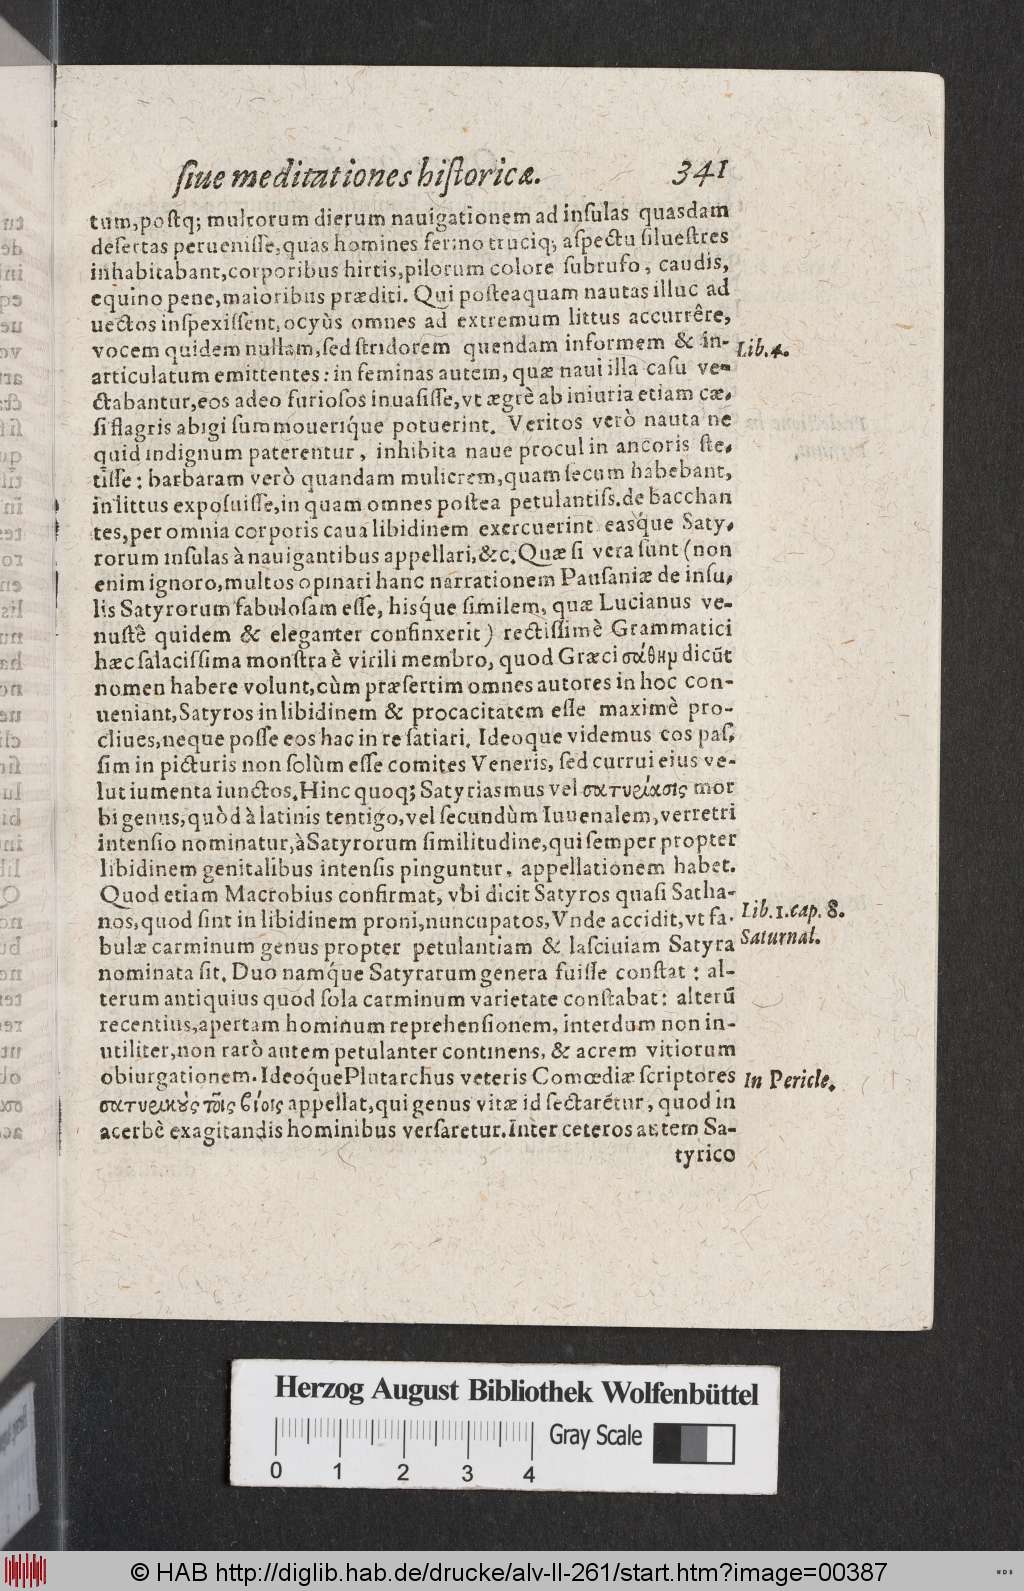 ſiue meditationes hiſtoricæ. 341
tum,poſtq; multorum dierum nauigationem ad inſulas quasdam
deſertas perueniſſe,quas homines ferino truciq; aſpectu ſilueſtres
inhabitabant,corporibus hirtis,pilorum colore ſubrufo, caudis,
equino pene,maioribus præditi. Qui poſteaquam nautas illuc ad
uectos inſpexiſſent,ocyùs omnes ad extremum littus accurrêre,
vocem quidem nullam,ſed ſtridorem quendam informem & in-
Lib.4.
articulatum emittentes: in feminas autem, quæ naui illa caſu ve-
ctabantur,eos adeo furioſos inuaſiſſe,vt ægrè ab iniuria etiam cæ,
ſi flagris abigi ſummoueríque potuerint. Veritos verò nauta ne
quid indignum paterentur, inhibita naue procul in ancoris ſte,
tiſſe: barbaram verò quandam mulierem,quam ſecum habebant,
in littus expoſuiſſe,in quam omnes poſtea petulantiſs.de bacchan
tes,per omnia corporis caua libidinem exercuerint easq́ue Saty,
rorum inſulas à nauigantibus appellari,&c.Quæ ſi vera ſunt (non
enim ignoro,multos opinari hanc narrationem Pauſaniæ de inſu,
lis Satyrorum fabuloſam eſſe, hisq́ue ſimilem, quæ Lucianus ve-
nuſtè quidem & eleganter confinxerit) rectiſſimè Grammatici
hæc ſalaciſſima monſtra è virili membro, quod Græci σάθημ dicūt
nomen habere volunt,cùm præſertim omnes autores in hoc con-
ueniant,Satyros in libidinem & procacitatem eſſe maximè pro-
cliues,neque poſſe eos hac in re ſatiari. Ideoque videmus eos paſ,
ſim in picturis non ſolùm eſſe comites Veneris, ſed currui eius ve-
lut iumenta iunctos.Hinc quoq; Satyriasmus vel σατυρίασις mor
bi genus,quòd à latinis tentigo,vel ſecundùm Iuuenalem,verretri
intenſio nominatur,à Satyrorum ſimilitudine,qui ſemper propter
libidinem genitalibus intenſis pinguntur, appellationem habet.
Quod etiam Macrobius confirmat, vbi dicit Satyros quaſi Satha-
nos,quod ſint in libidinem proni,nuncupatos,Vnde accidit,vt fa-
Lib.1.cap. 8.
Saturnal.
bulæ carminum genus propter petulantiam & laſciuiam Satyra
nominata ſit. Duo namq́ue Satyrarum genera fuiſſe conſtat: al-
terum antiquius quod ſola carminum varietate conſtabat: alterū
recentius,apertam hominum reprehenſionem, interdum non in-
utiliter,non rarò autem petulanter continens, & acrem vitiorum
obiurgationem.Ideoq́ue Plutarchus veteris Comœdiæ ſcriptores
In Pericle.
σατυρικοὺς τοῖς βίοις appellat,qui genus vitæ id ſectarētur, quod in
acerbè exagitandis hominibus verſaretur.Inter ceteros autem Sa-
tyrico
Herzog August Bibliothek Wolfenbüttel
Gray Scale
0 1 2 3 4
© HAB http://diglib.hab.de/drucke/alv-ll-261/start.htm?image=00387